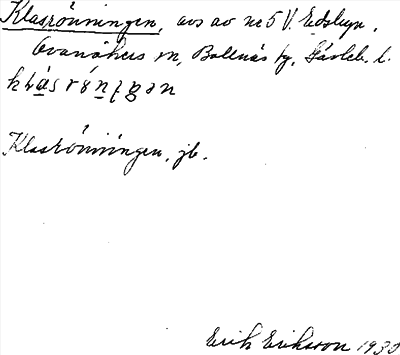 Klasrönningen, avs av nr 5 V. Edsbyn,
Ovanåkers sn, Bollnäs tg, Gävleb. l.
Klasrönningen, jb.
Erik Eriksson 1930